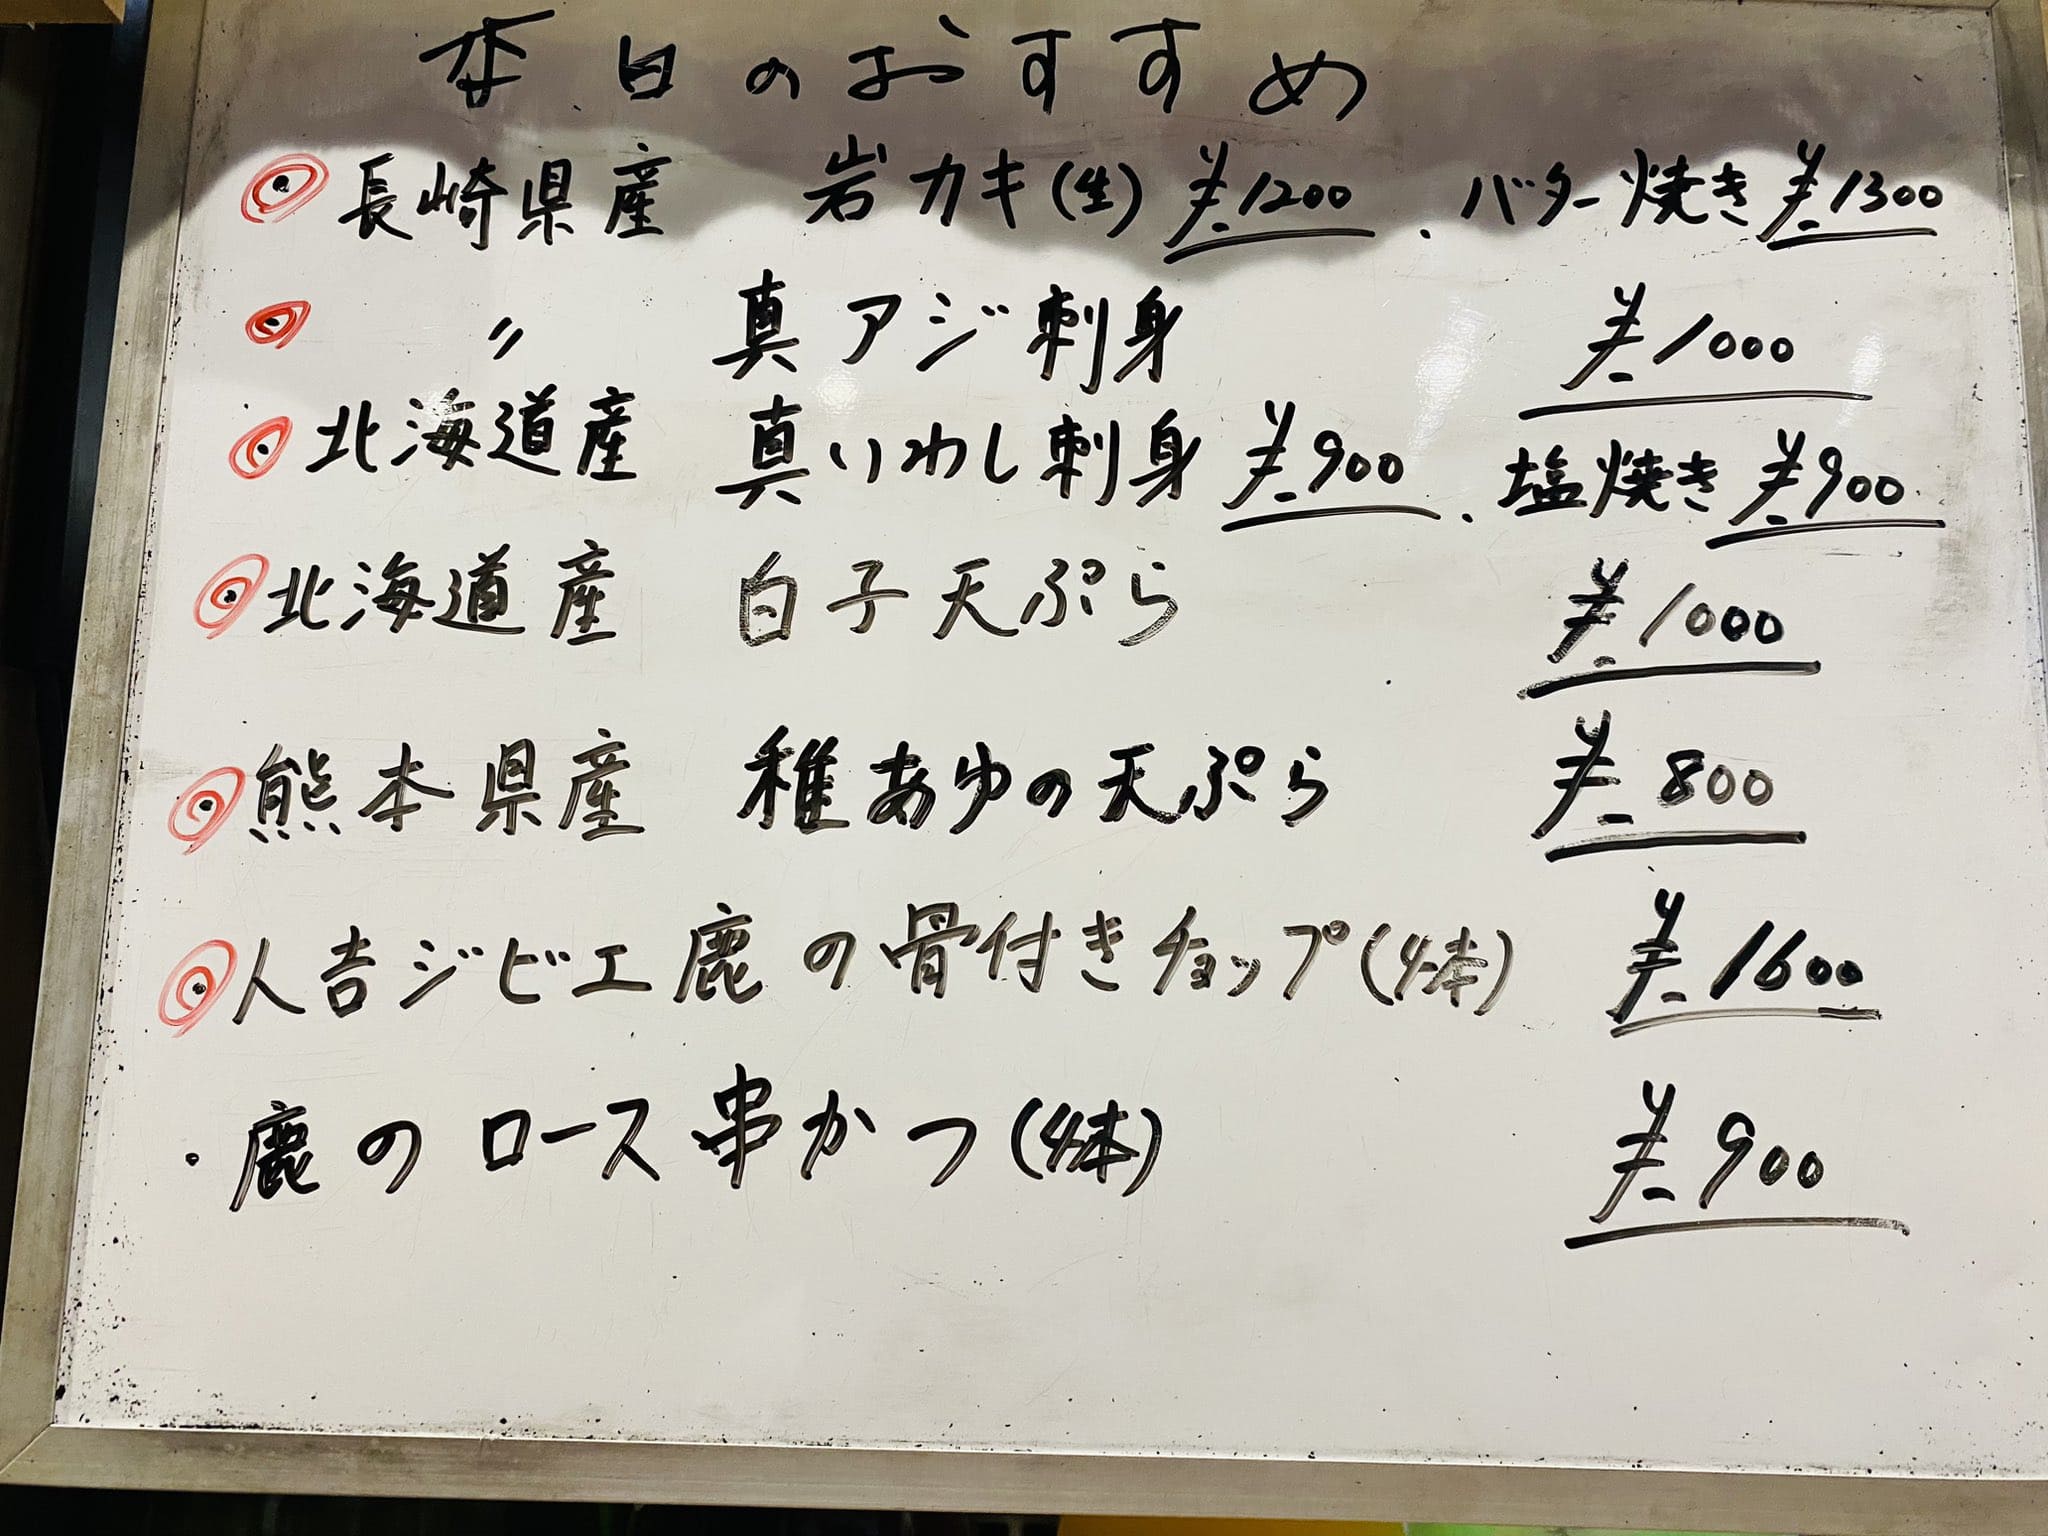 本日のおすすめ
長崎県産 岩カキ(生) ¥1200. バター焼き ¥1300
〃 真アジ刺身 ¥1000
北海道産 真いわし刺身 ¥900. 塩焼き ¥900
北海道産 白子天ぷら ¥1000
熊本県産 稚あゆの天ぷら ¥800
人吉ジビエ鹿の骨付きチョップ(4本) ¥1600
・鹿のロース串かつ(4本) ¥900